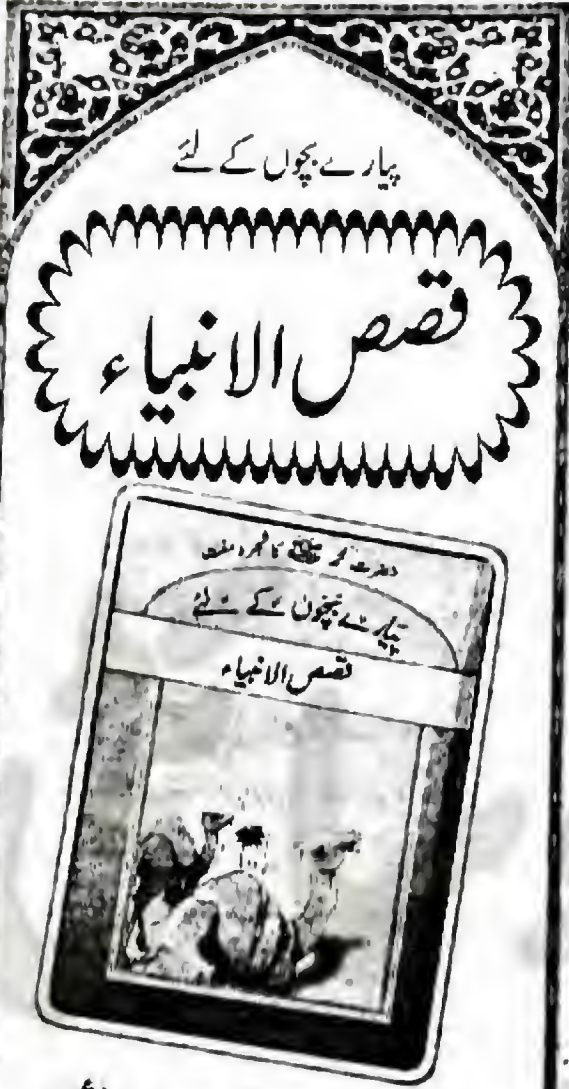 پیارے بچوں کے لئے
قصص الانبیاء
حضرت محمد ﷺ کا شجرہ مفت
پیارے بچوں کے لئے
قصص الانبیاء